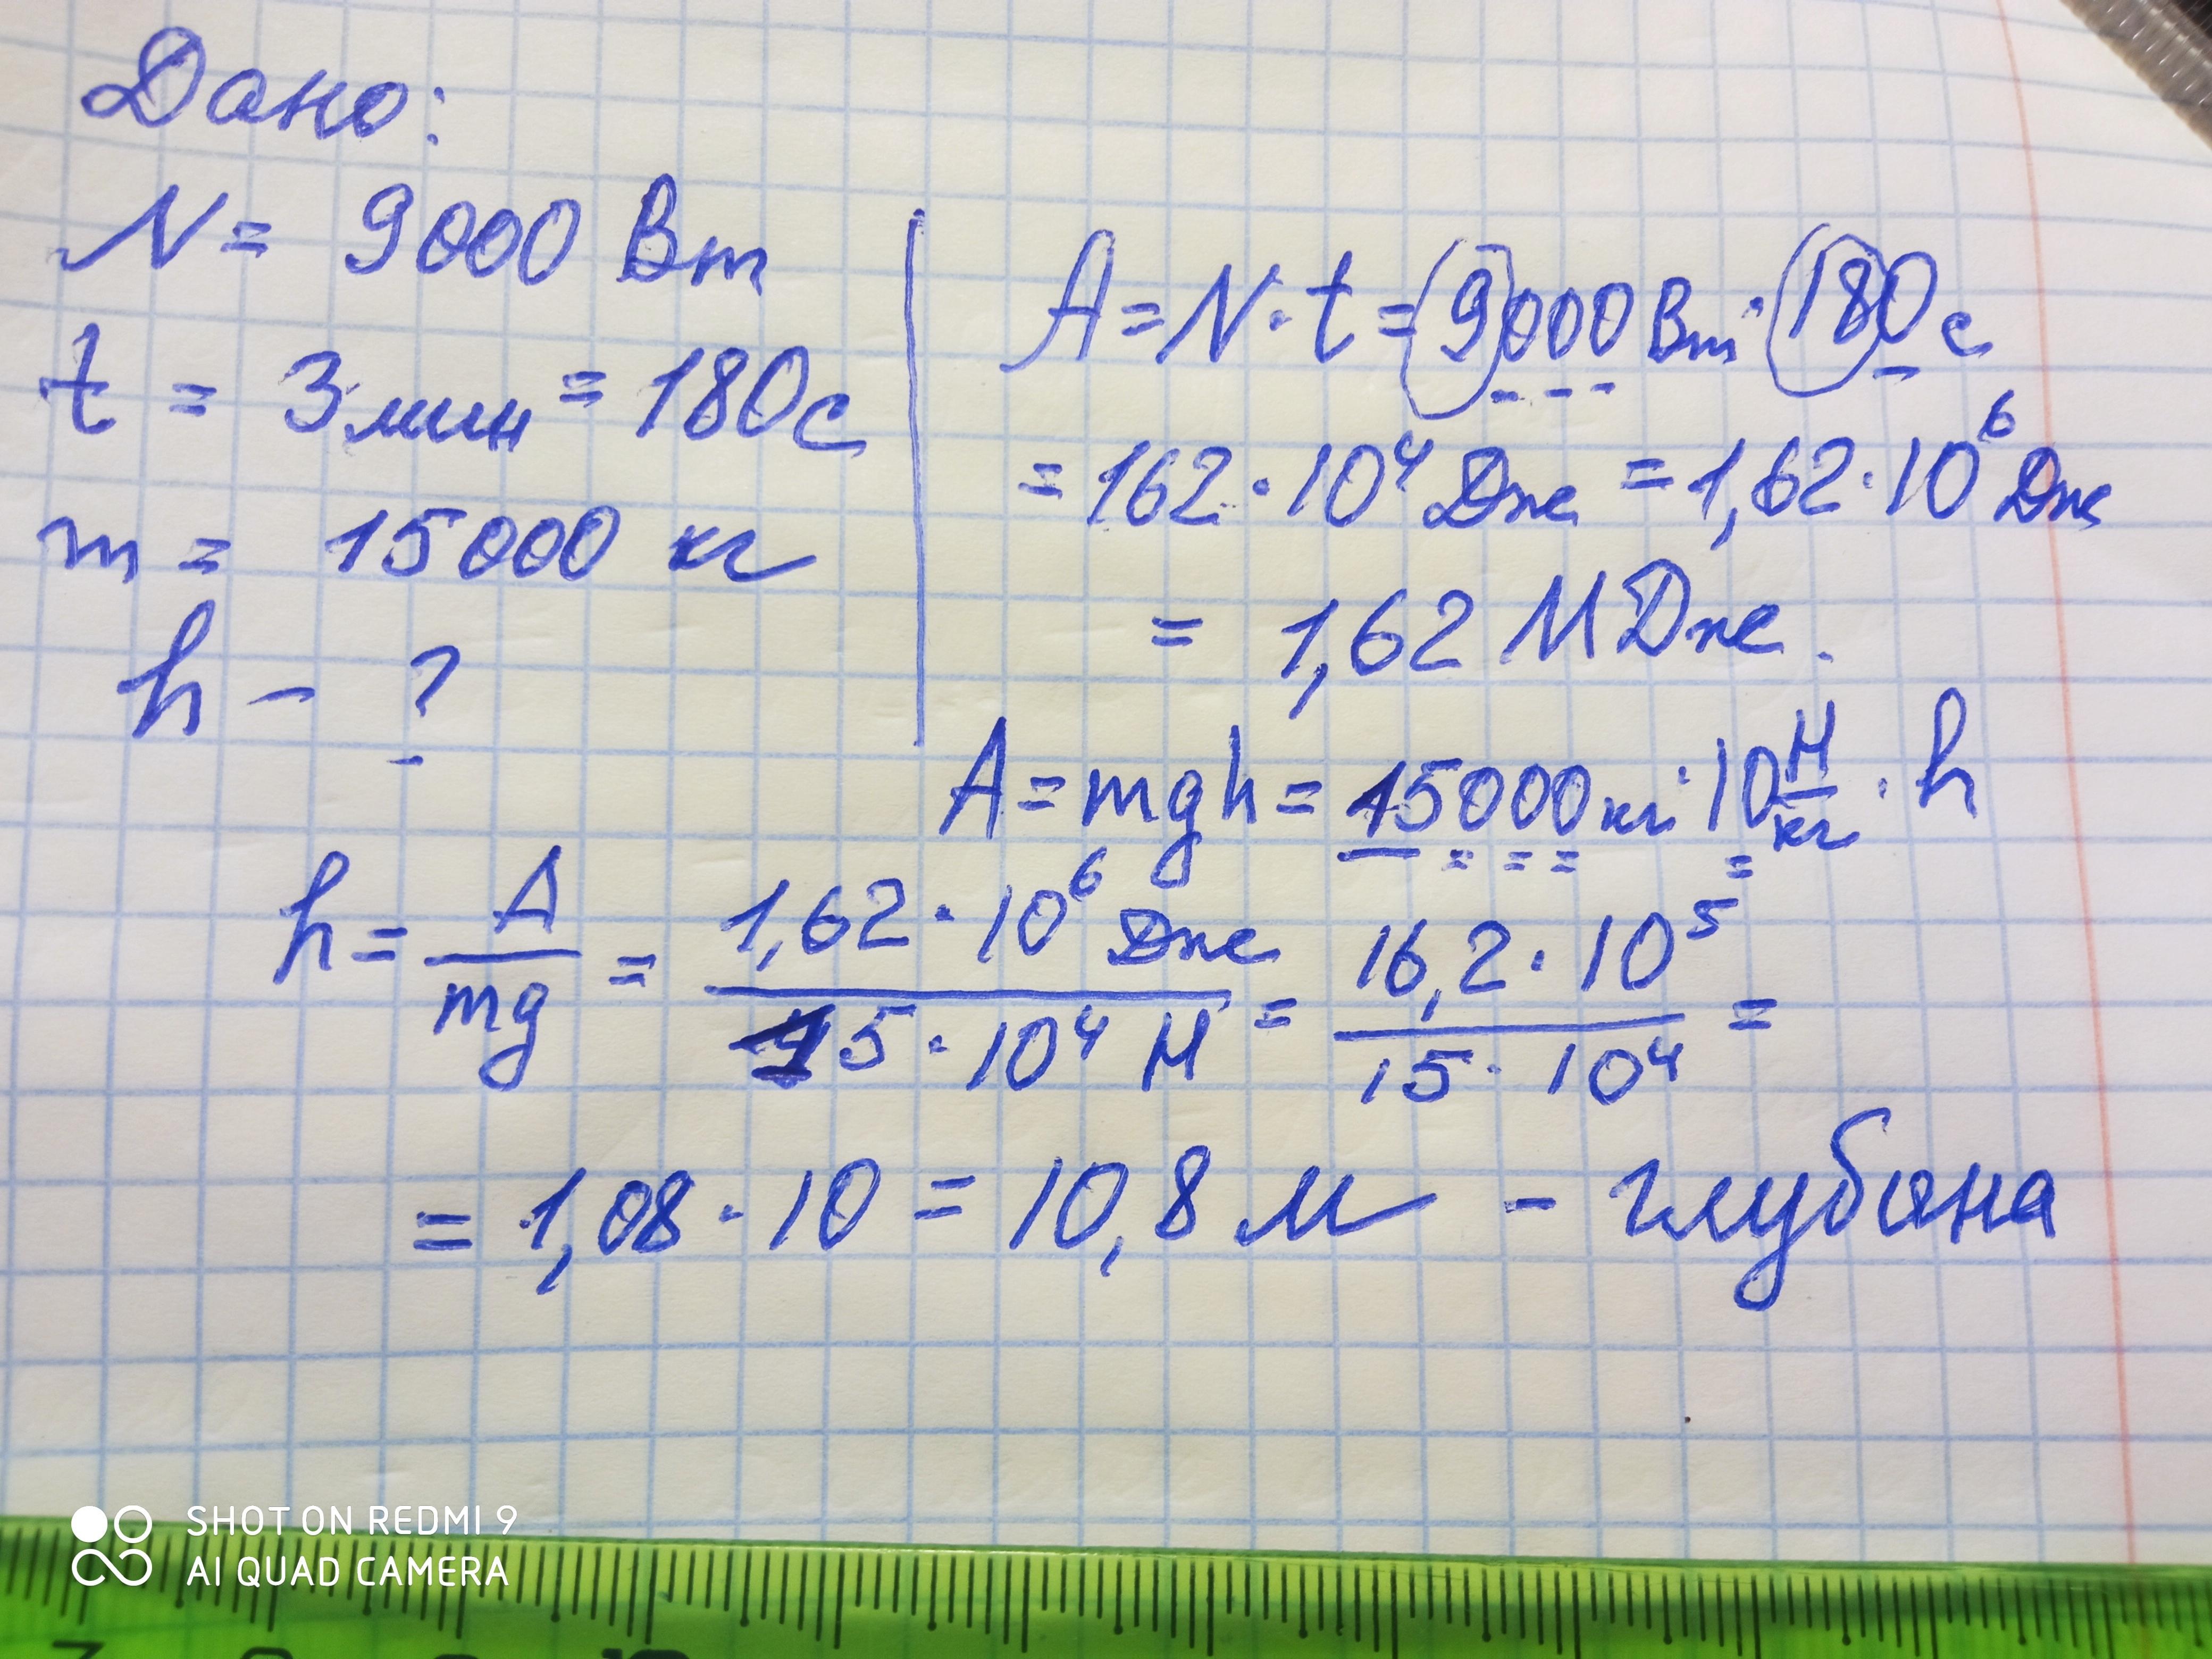 Дано:
N = 9000 Вт
t = 3 мин = 180 с
m = 15000 кг
h - ?
A = N · t = 9000 Вт · 180 с
= 162 · 10⁴ Дж = 1,62 · 10⁶ Дж
= 1,62 МДж.
A = mgh = 15000 кг · 10 Н/кг · h
h = A/mg = 1,62 · 10⁶ Дж / 15 · 10⁴ Н = 16,2 · 10⁵ / 15 · 10⁴ =
= 1,08 · 10 = 10,8 м - глубина
SHOT ON REDMI 9
AI QUAD CAMERA